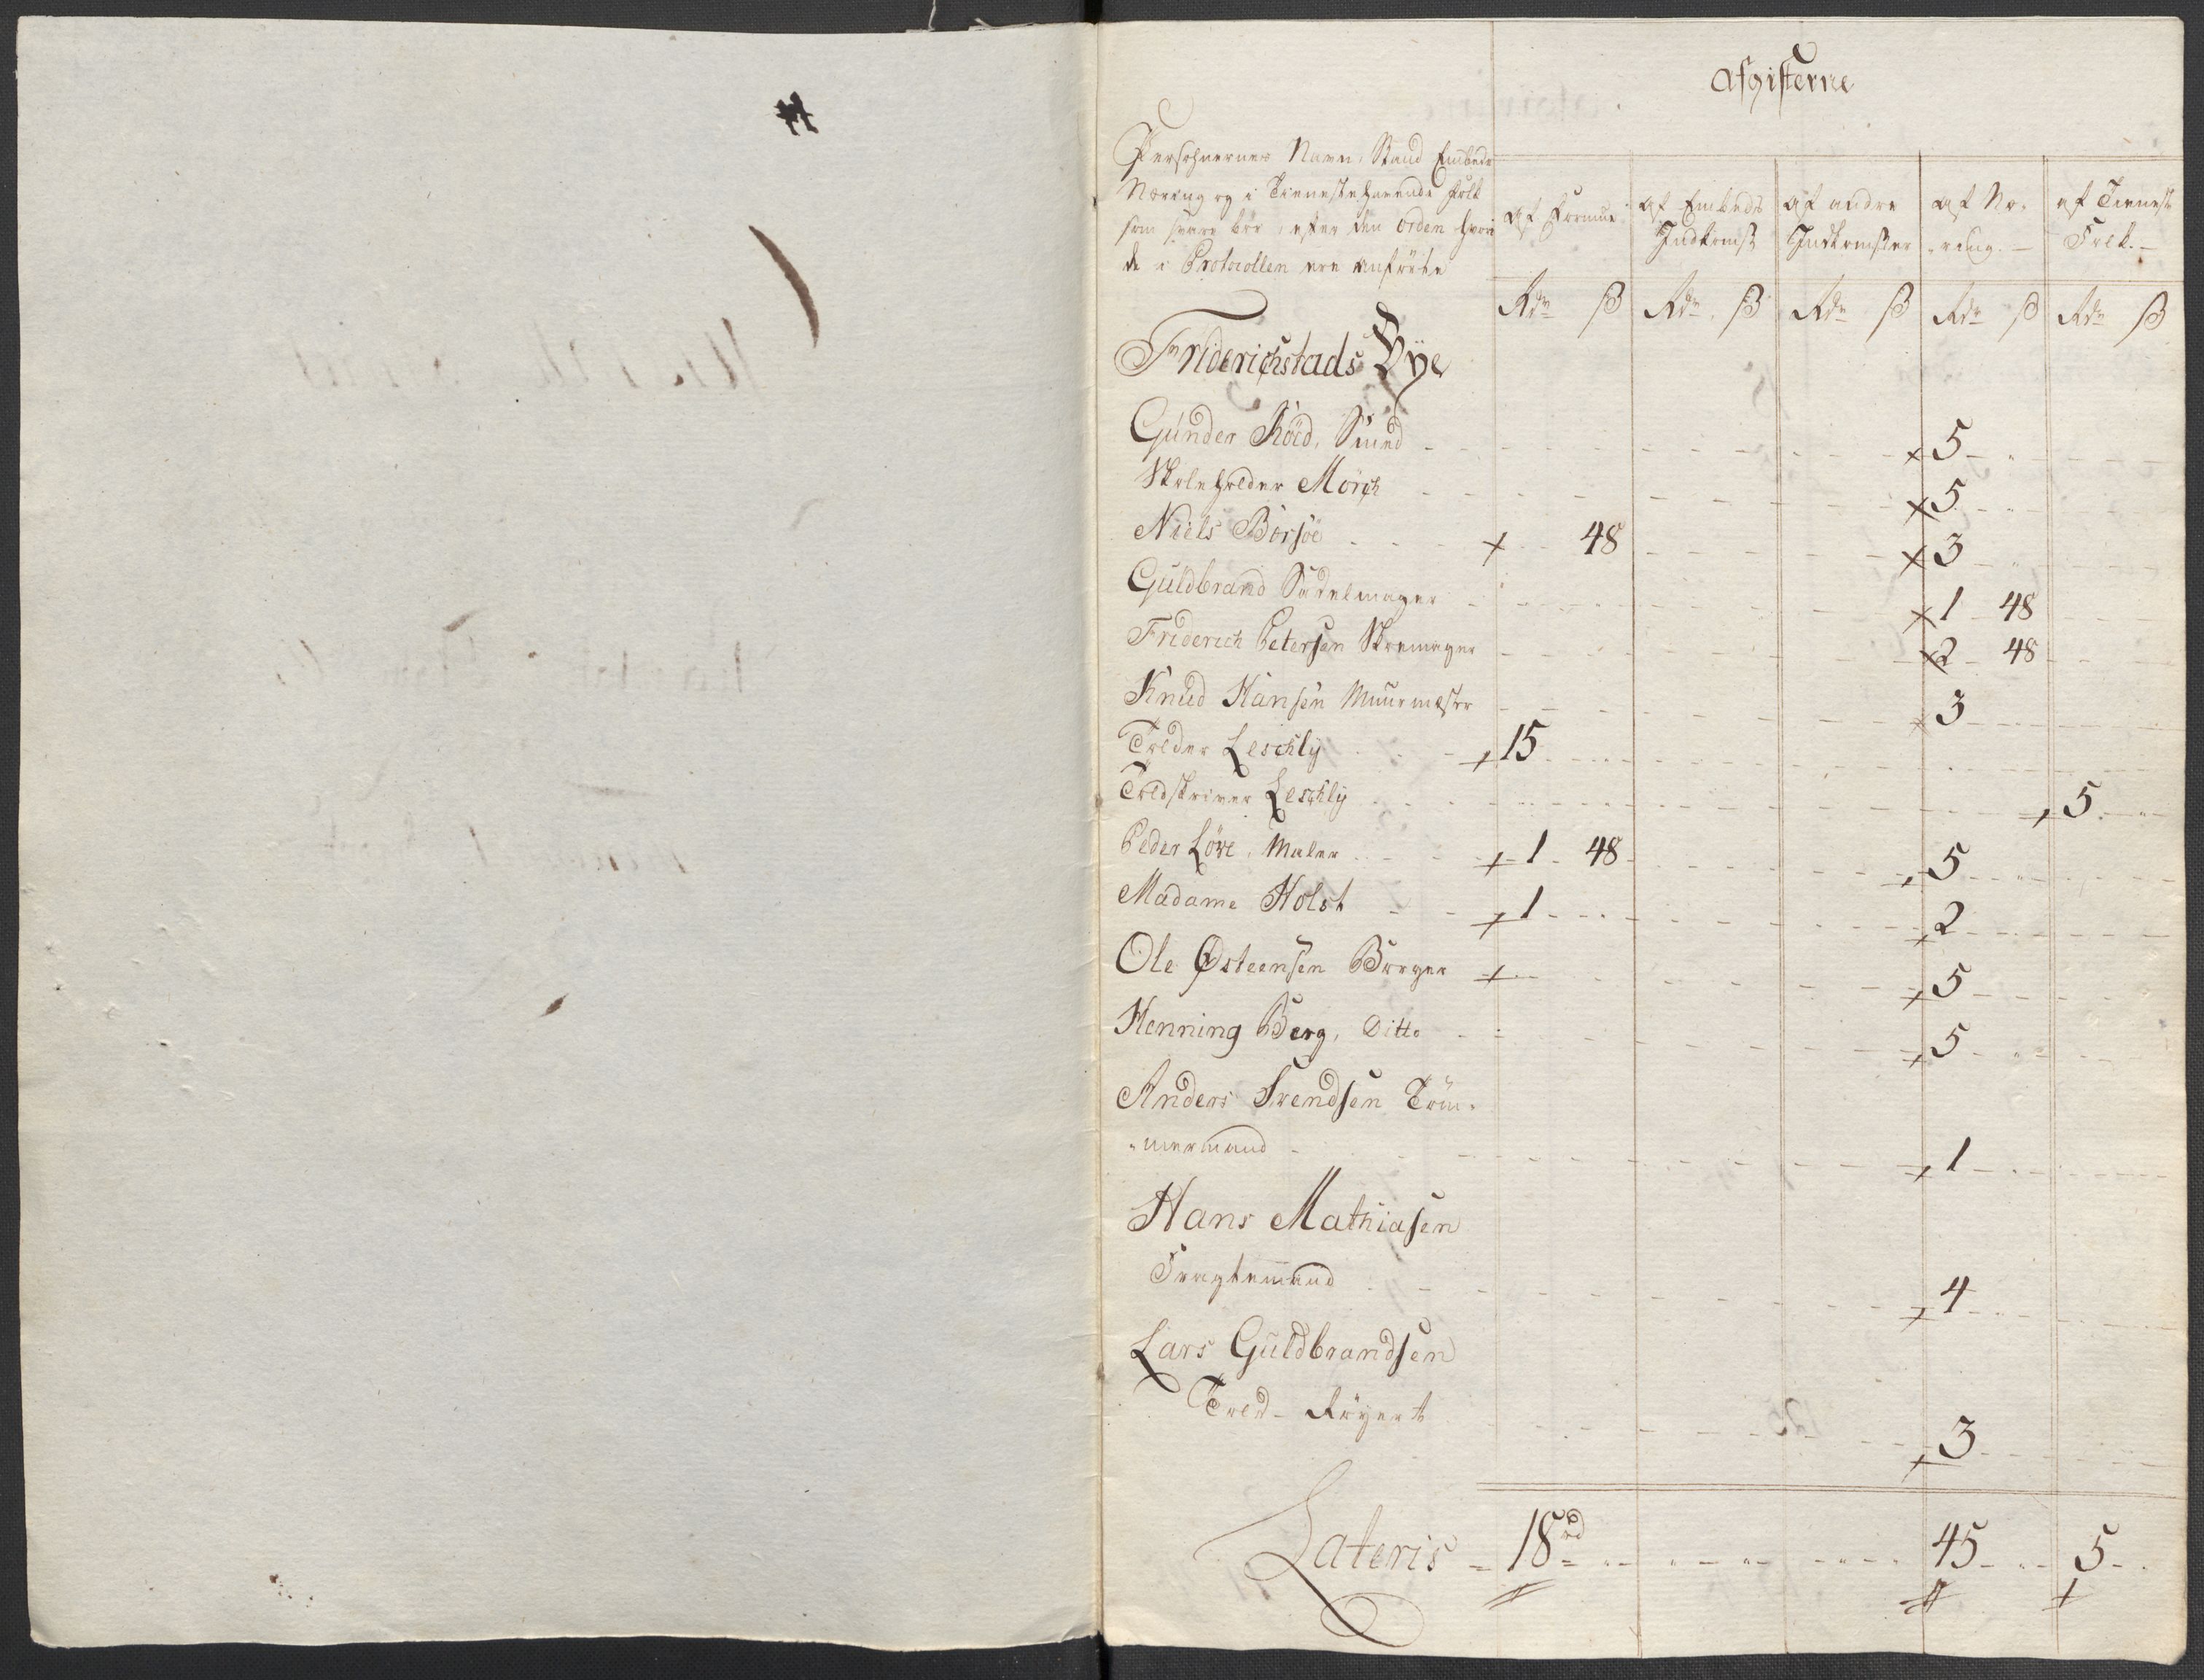 Afgifterne
Persohnernes Navn, Stand Embede
Næring og i Tienestehavende folk
som svare bør, efter den Orden hvori
de i Protocollen ere anførte
af Formue
af Embeds Indkomst
af andre Indkomster
af Næ-ring. —
af Tieneste Folk. —
Rdr ß Rdr ß Rdr ß Rdr ß Rdr ß
Friderichstads Bÿe
Gunder Röed, Smed - x 5
Skoleholder Mörch x 5
Niels Borsöe x 48 x 3
Guldbrand Sadelmager x 1 48
Friderich Petersen Skomager x 2 48
Knud Hansen Muurmester x 3
Tolder Leschlÿ x 15
Toldskriver Leschlÿ x 5
Peder Löve, Maler x 1 48 x 5
Madame Holst x 1 x 2
Ole Østeensen Borger x x 5
Henning Berg, Ditto x 5
Anders Svendsen Töm-
-mermand x 1
Hans Mathiasen
Fragtemand x 4
Lars Guldbrandsen
Told- Røyert x 3
Lateris 18 rd 45 5